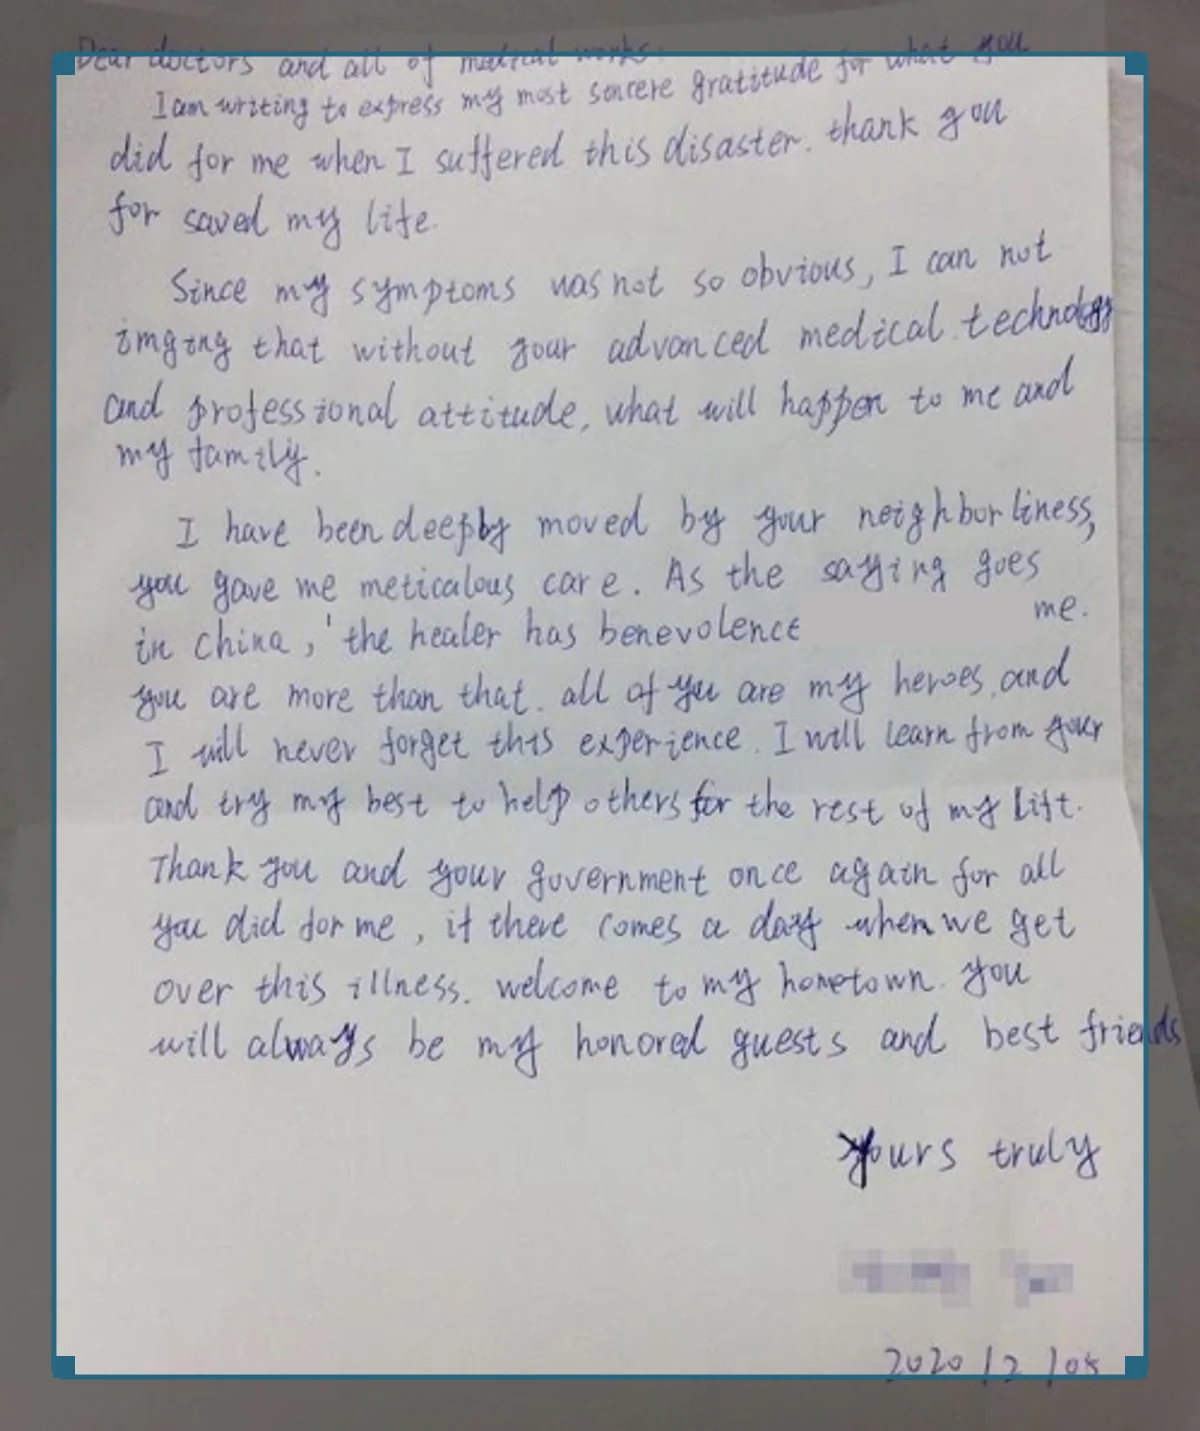 Dear doctors and all of medical works:
I am writing to express my most sincere gratitude for what you
did for me when I suffered this disaster. thank you
for saved my life.
Since my symptoms was not so obvious, I can not
imging that without your advanced medical technology
and professional attitude, what will happen to me and
my family.
I have been deeply moved by your neighborliness,
you gave me meticalous care. As the saying goes
in China, 'the healer has benevolence me.
you are more than that. all of you are my heroes, and
I will never forget this experience. I will learn from your
and try my best to help others for the rest of my lift.
Thank you and your government once again for all
you did for me, if there comes a day when we get
over this illness. welcome to my hometown. you
will always be my honored guests and best friends
yours truly
2020/2/05